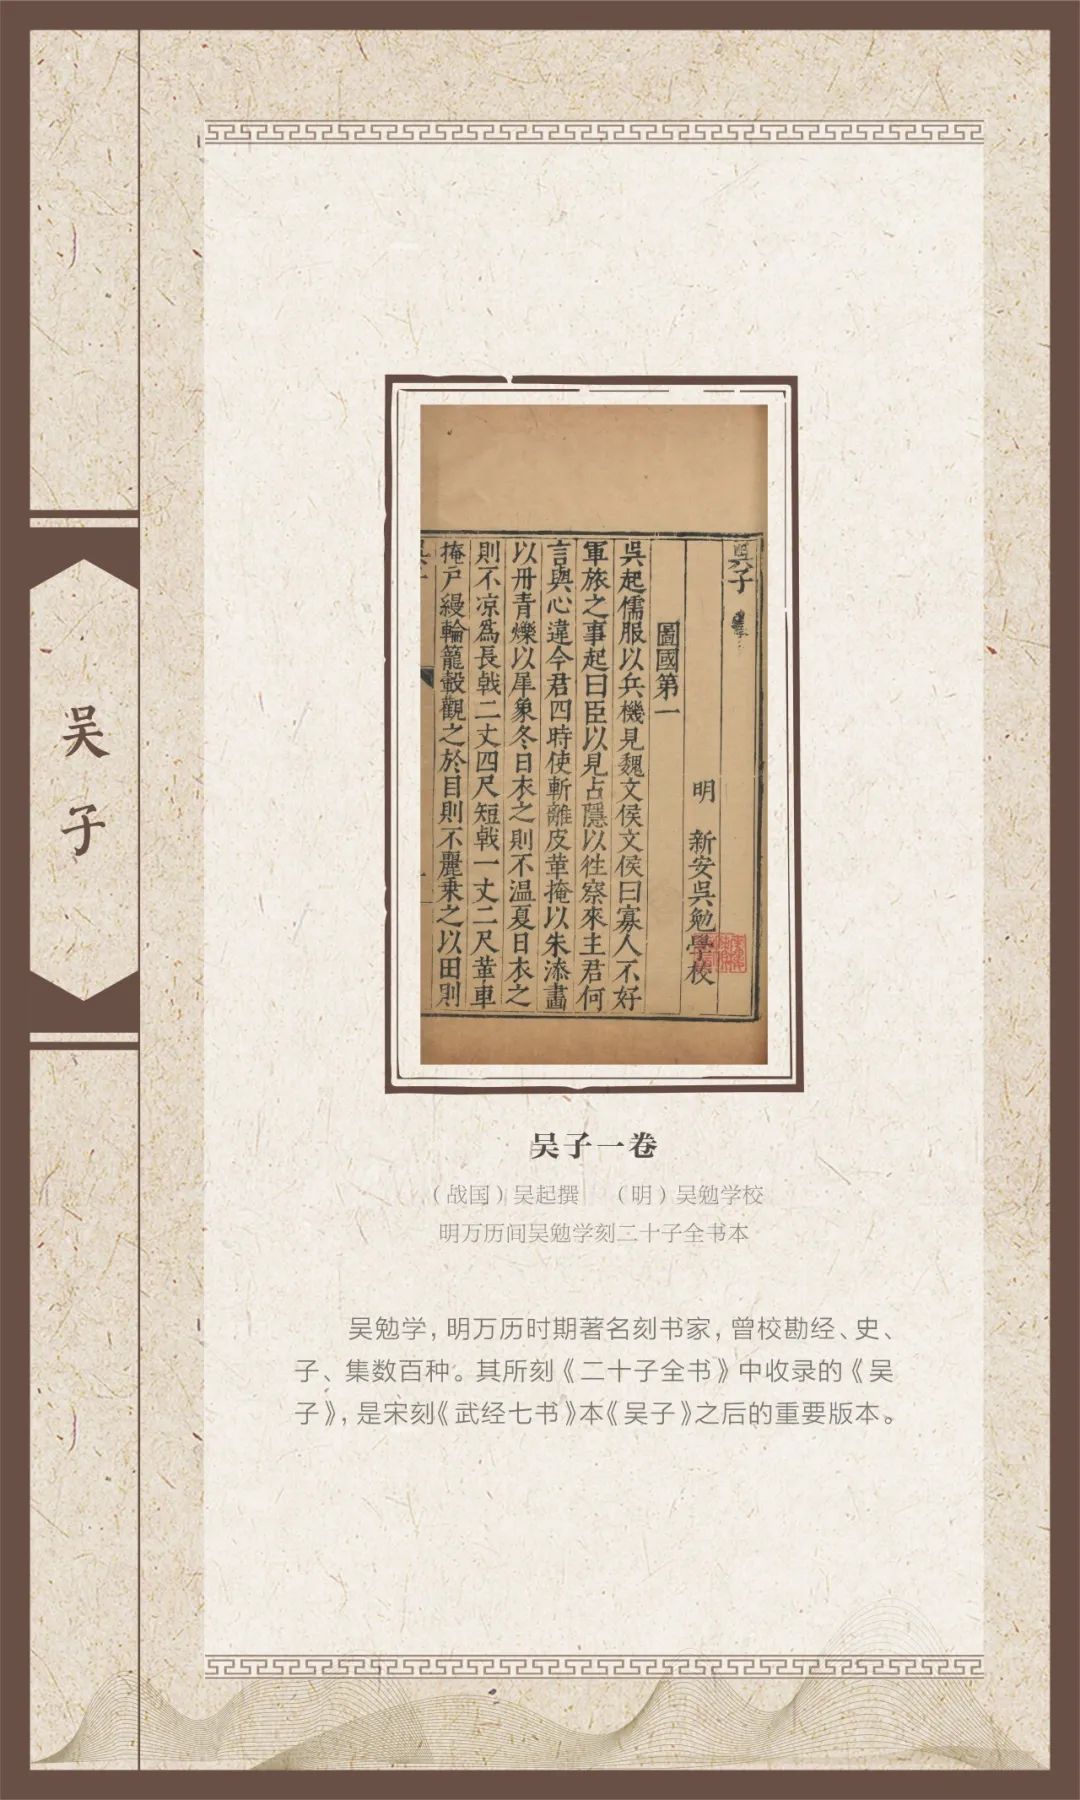 吴子
吳子
明 新安吳勉學校
圖國第一
吳起儒服以兵機見魏文侯文侯曰寡人不好
軍旅之事起曰臣以見占隱以徃察來主君何
言與心違今君四時使斬離皮革掩以朱漆畫
以丹青爍以犀象冬日衣之則不温夏日衣之
則不凉為長戟二丈四尺短戟一丈二尺革車
掩戸縵輪籠轂觀之於目則不麗乗之以田則
吴子一卷
（战国）吴起撰 （明）吴勉学校
明万历间吴勉学刻二十子全书本
吴勉学，明万历时期著名刻书家，曾校勘经、史、
子、集数百种。其所刻《二十子全书》中收录的《吴
子》，是宋刻《武经七书》本《吴子》之后的重要版本。